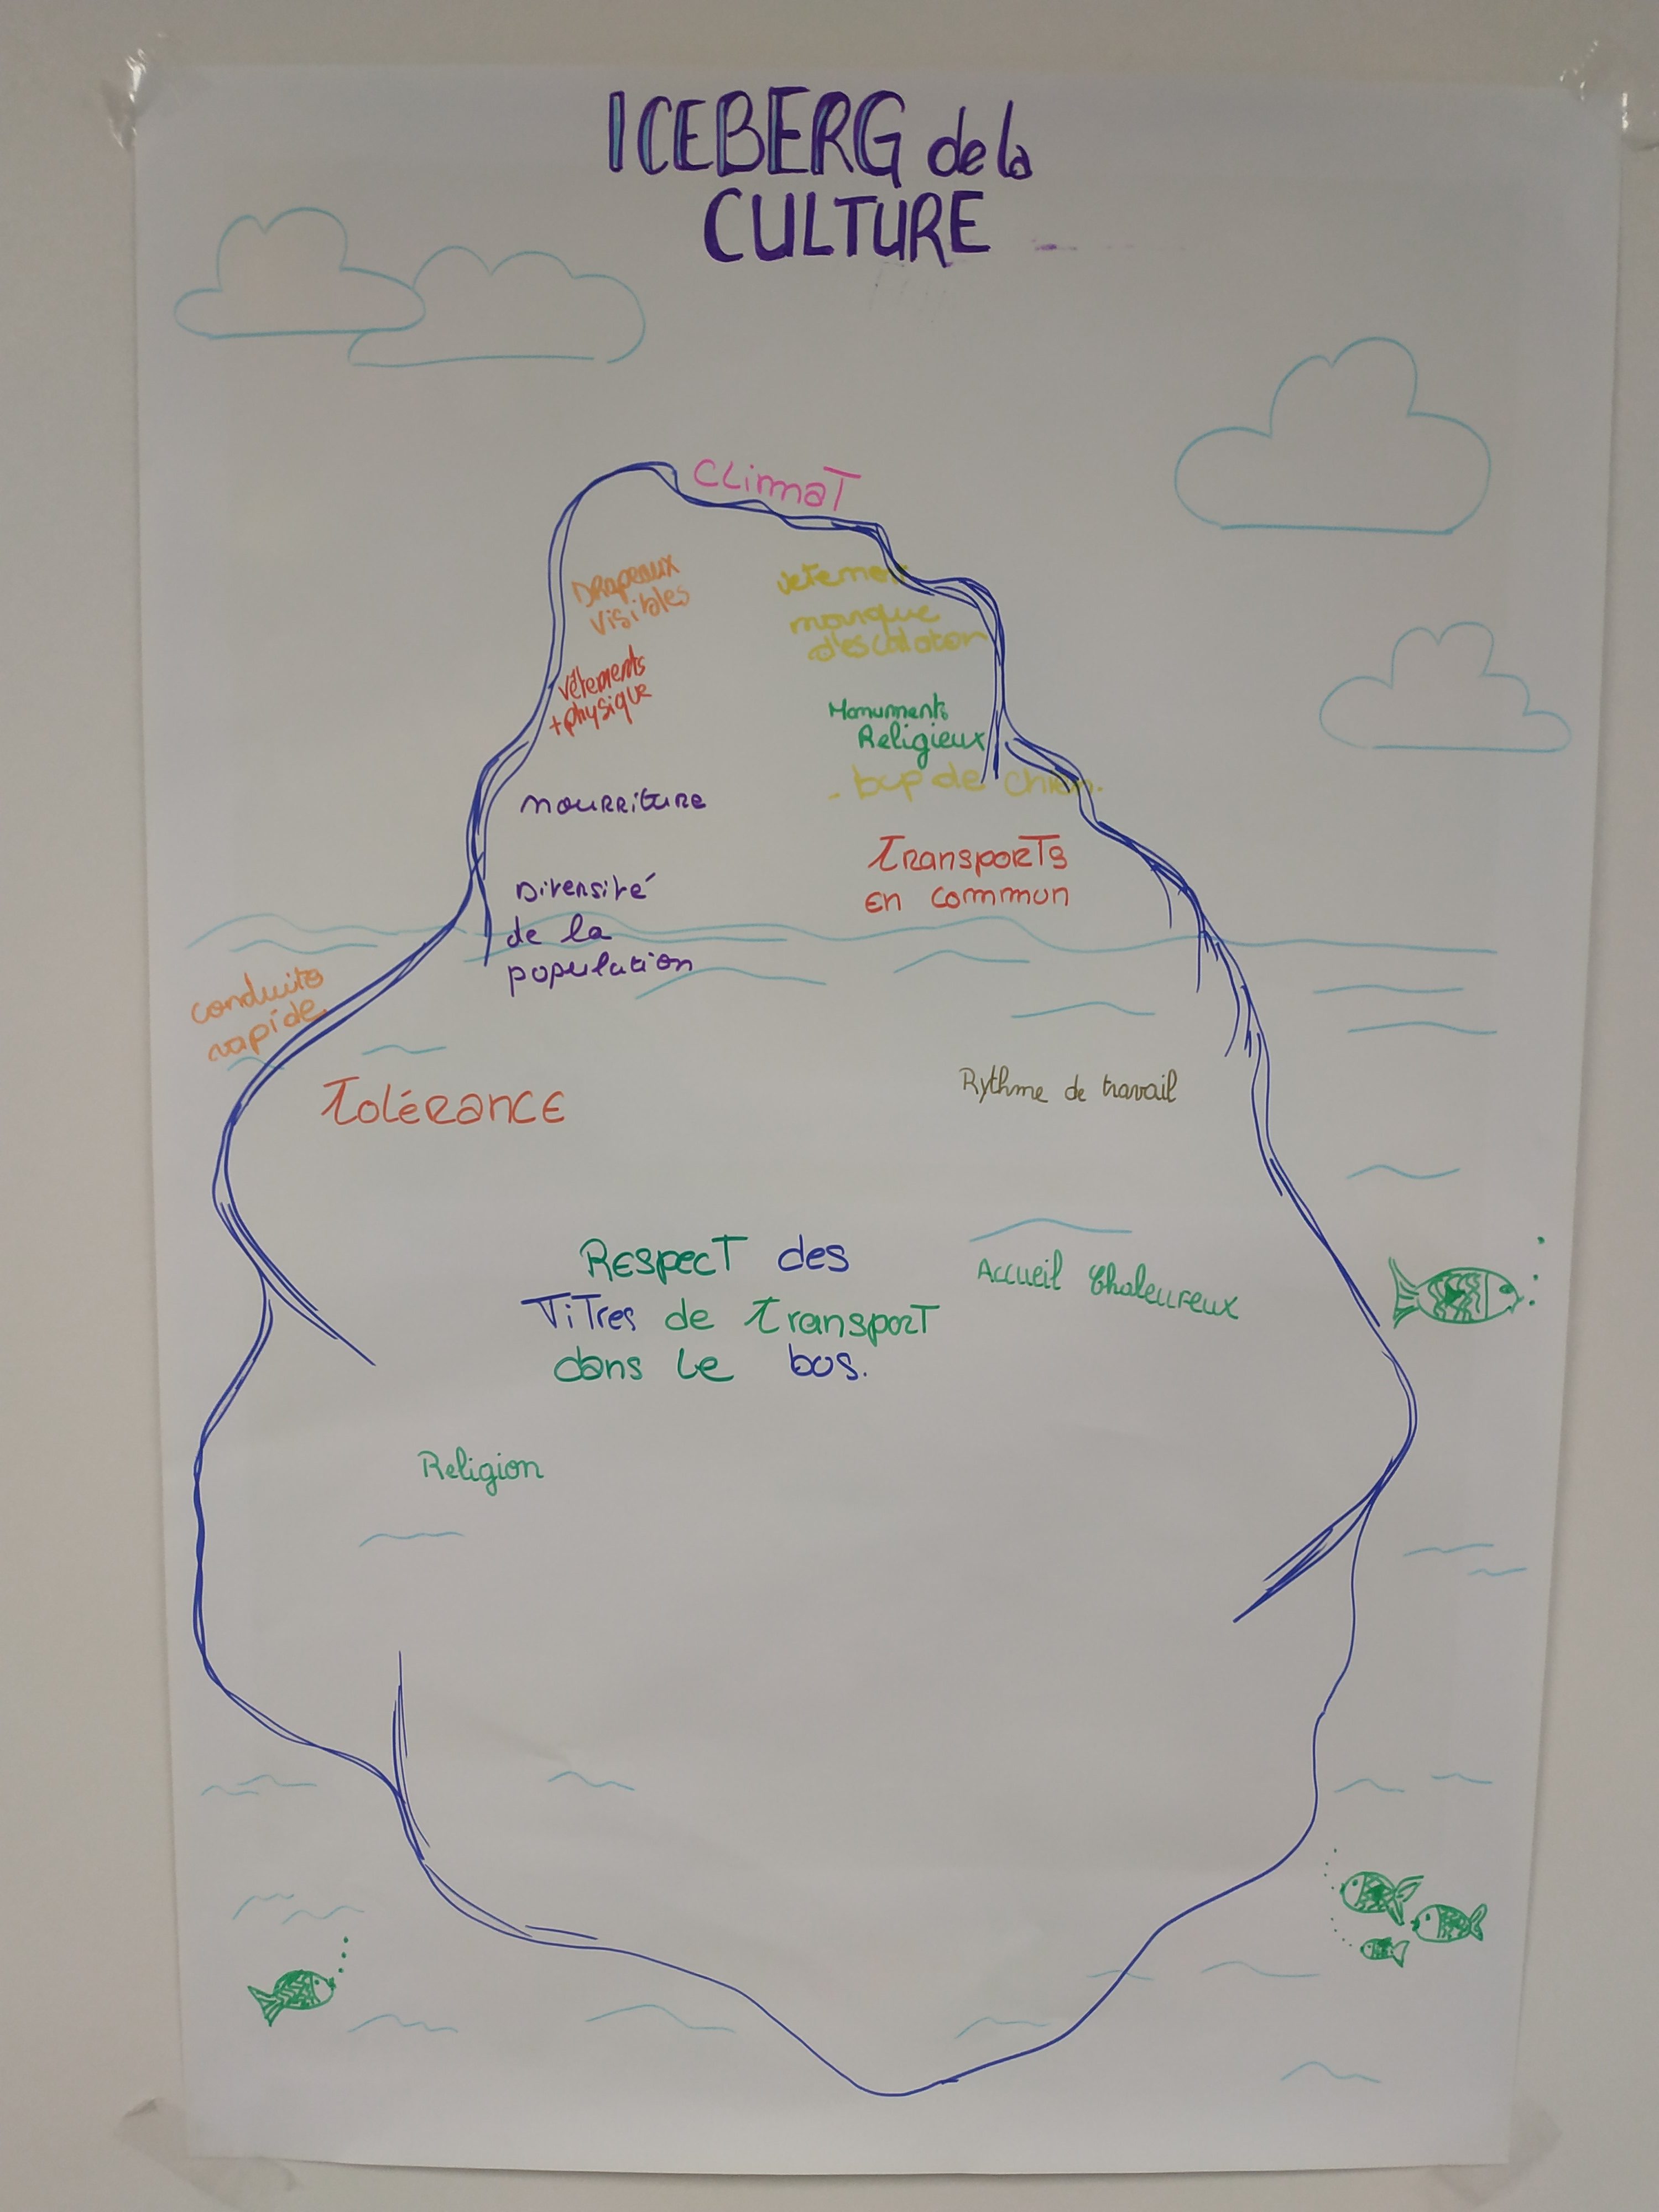 ICEBERG de la
CULTURE
CLimaT
DRapeaux
visibles
vetement
manque
d'escalator
vêtements
+physique
Monuments
Religieux
- bcp de chien.
nouRRituRe
TRanspoRTs
en commun
Diversité
de la
population
conduite
rapide
ToléRance
Rythme de travail
RespecT des
TiTres de TranspoRT
dans le bus.
Accueil Chaleureux
Religion